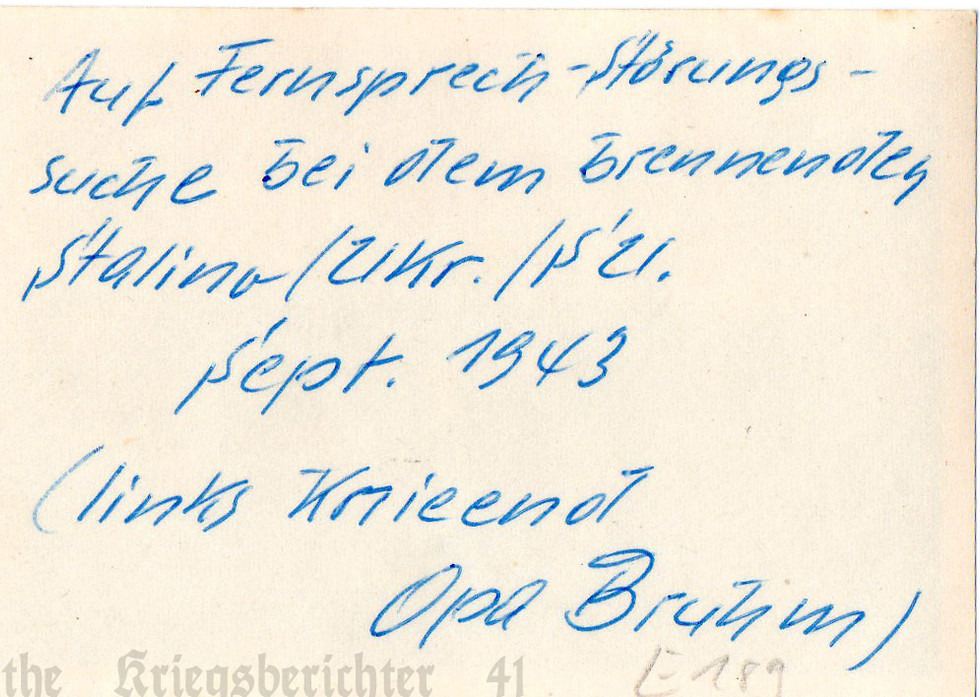 Auf Fernsprech-Störungs-
suche bei dem brennenden
Stalino/Ukr./SU.
Sept. 1943
(links Knieend
Opa Bruhm)
the Kriegsberichter 41
E 189